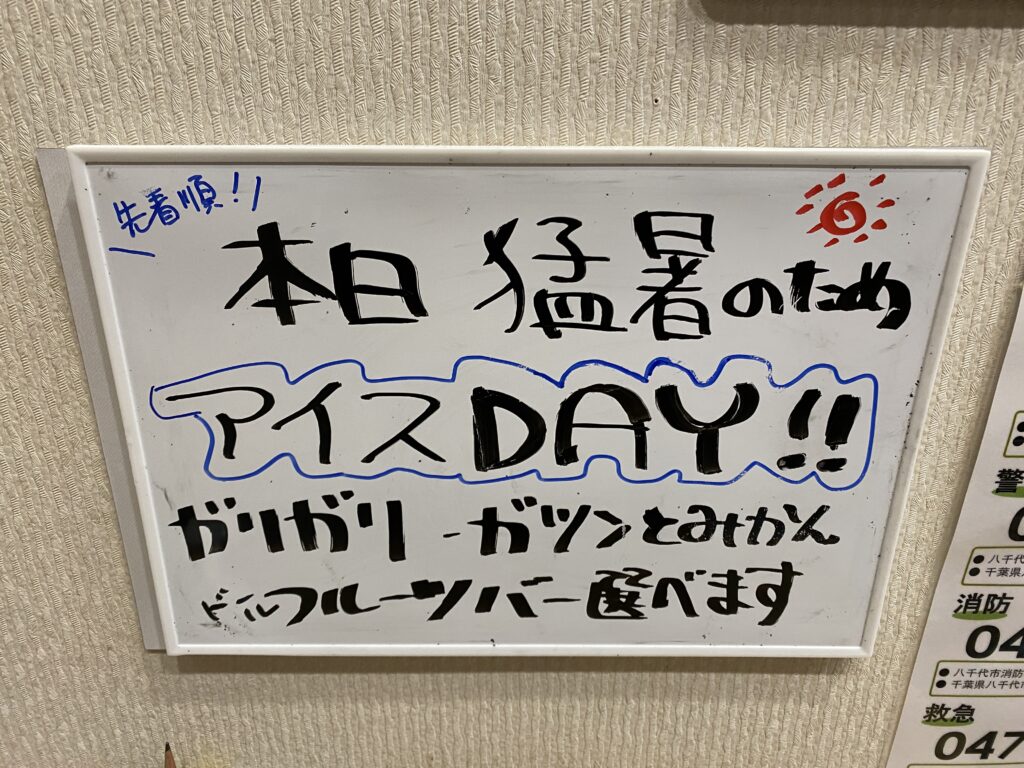 先着順!!
本日 猛暑のため
アイスDAY!!
ガリガリ - ガツンとみかん
ドールフルーツバー選べます
警
0
● 八千代
● 千葉県
消防
04
● 八千代市消防
● 千葉県八千代市
救急
047